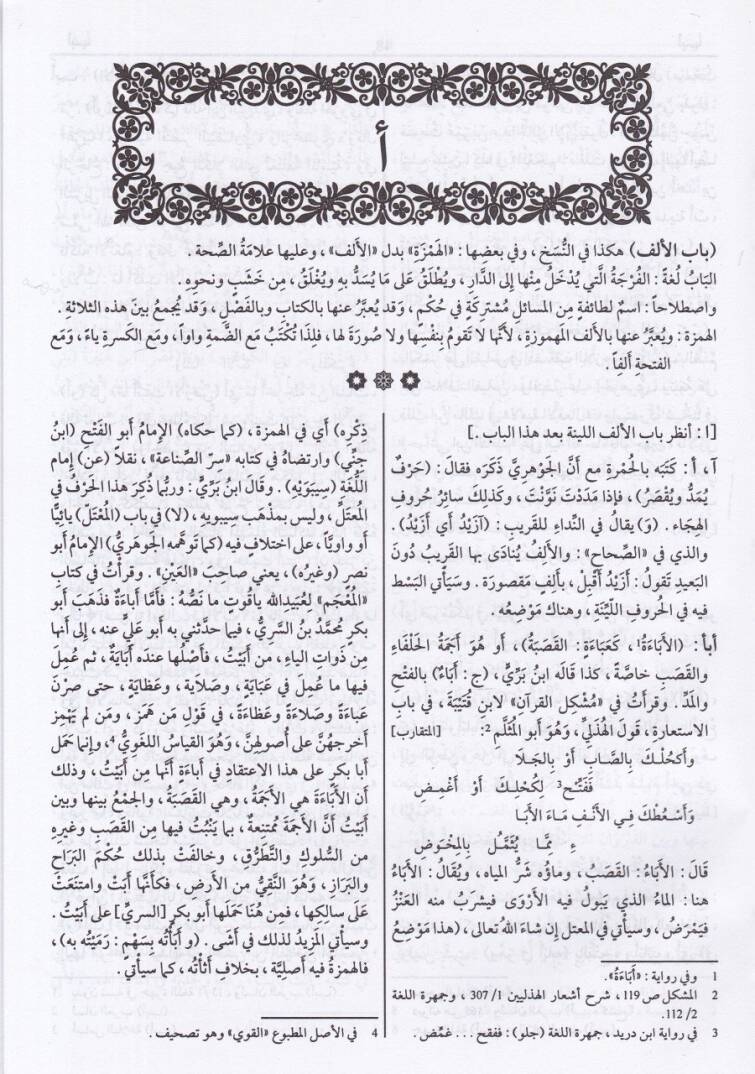 أ
(باب الألف) هكذا في النُّسَخ ، وفي بعضِها : «الهَمْزَة» بدل «الألف» ، وعليها علامَةُ الصِّحه .
البَابُ لُغةً : الفُرْجَةُ الَّتي يُدْخَلُ مِنْها إلى الدَّارِ ، ويُطْلَقُ على ما يُسَدُّ بِهِ ويُغْلَقُ ، مِن خَشَبٍ ونحوِهِ .
واصطلاحاً : اسمٌ لطائفةٍ مِن المسائِلِ مشتركةٍ في حُكْم ، وقَد يُعبَّرُ عنها بالكتابِ وبالفَصْلِ ، وقَد يُجمعُ بينَ هذه الثلاثة .
الهمزة : ويُعبَّرُ عنها بالألف المهموزة ، لأنَّها لا تَقومُ بِنَفْسِها ولا صُورَةَ لها ، فلِذَا تُكْتَبُ مَع الضَّمةِ واواً ، ومَع الكسرةِ ياءً ، ومَع
الفتحةِ ألفاً .
[ا : أنظر باب الألف اللينة بعد هذا الباب .]
آ ، أ : كَتَبَه بالحُمْرة مع أنَّ الجَوْهَريَّ ذَكَرَه فقالَ : (حَرْفٌ
يُمَدُّ ويُقْصَرُ) ، فإذا مَدَدْتَ نَوَّنْتَ ، وكذلك سائِرُ حُروفِ
الهِجاء . (وَ) يقالُ في النِّداءِ للقريبِ : (آزَيْدُ أي أَزَيْدُ) .
والذي في «الصِّحاحِ» : والألِفُ يُنادَى بها القَريبُ دُونَ
البَعيدِ تَقولُ : أَزَيْدُ أَقْبِلْ ، بألفٍ مقصورَة . وسيَأْتي البَسْط
فيه في الحُروفِ اللَّيِّنَة ، وهناك مَوْضِعُه .
أبأ : (الأَبَاءَةُ1 ، كعَبَاءَةٍ : القَصَبَة) ، أو هُو أَجَمَةُ الحَلْفاءِ
والقَصَبِ خاصَّةً ، كذا قالَه ابنُ بَرِّيٍّ ، (ج : أَبَاءٌ) بالفَتْح
والمَدِّ . وقرأتُ في «مُشْكِل القرآن» لابن قُتَيْبَة ، في باب
الاستعارة ، قولَ الهُذَليّ ، وهُوَ أبو المُثَلَّم 2: [المتقارب]
وأَكحُلْكَ بالصَّابِ أَوْ بِالجَلَا
فَفَتِّحْ لِكُحْلِكَ أَوْ أَغْمِضِ
وَأَسْعُطْكَ فـي الأَنْـفِ مَـاءَ الأَبَـا
قالَ : الأَبَاءُ : القَصَبُ ، وماؤه شَرُّ المياه ، ويُقالُ : الأبَاءُ
هنا : الماءُ الذي يَبول فيه الأرْوَى فيشرَبُ منه العَنْزُ
فيَمْرَض ، وسيأتي في المعتل إن شاءَ الله تعالى ، (هذا مَوْضِعُ
1 وفي رواية : «أَبَاءَةُ».
2 المشكل ص 119 ، شرح أشعار الهذليين 1/ 307 ، وجمهرة اللغة
2/ 112.
3 في رواية ابن دريد ، جمهرة اللغة (جلو) : ففقح . . . غمّض .
ذِكْرِه) أي في الهمزة ، (كما حكاه) الإمامُ أبو الفَتْحِ (ابنُ
جِنِّي) وارتضاهُ في كتابه «سِرّ الصِّناعة» ، نقلاً (عن) إمام
اللُّغَة (سيبَوَيْهِ) . وقالَ ابنُ بَرِّيٍّ : وربَّما ذُكِرَ هذا الحَرْفُ في
المُعتَلِّ ، وليس بمذْهَب سيبويه ، (لا) في باب (المُعْتَلّ) يائيًّا
أو واويّاً ، على اختلافٍ فيه (كما تَوهَّمه الجوهَريُّ) الإمامُ أبو
نصر (وغيرُه) ، يعني صاحِبَ «العَيْن» . وقرأتُ في كتاب
«المُعْجَم» لعُبَيدالله ياقوت ما نَصُّه : فأَمَّا أَبَاءَةٌ فذهَبَ أبو
بكر محمَّدُ بنُ السَّرِيِّ ، فيما حدَّثني به أبو عليٍّ عنه ، إلى أنها
مِن ذَواتِ الياءِ ، من أَبَيْتُ ، فأصْلُها عندَه أَبَايَةٌ ، ثم عُمِلَ
فيها ما عُمِلَ في عَبَايَةٍ ، وصَلايةٍ ، وعَظايةٍ ، حتى صِرْنَ
عَبَاءةً وصَلاءَةً وعَظاءةً ، في قَوْلِ مَن هَمَزَ ، ومَن لم يَهْمِزْ
أخرجهُنَّ على أُصولهنَّ ، وهُوَ القياسُ اللغَويُّ 4، وإنما حَمَلَ
أبا بكرٍ على هذا الاعتقادِ في أَبَاءةٍ أنها مِن أَبَيْتُ ، وذلك
أن الأَبَاءَةَ هي الأَجَمَةُ ، وهي القَصَبَةُ ، والجمْعُ بينها وبين
أَبَيْتُ أنَّ الأَجَمَةَ ممتنِعةٌ ، بما يَنْبُتُ فيها مِن القَصَبِ وغيرِهِ
من السُّلوكِ والتَّطرُّقِ ، وخالفتْ بذلك حُكْمَ البَرَاحِ
والبَرَازِ ، وَهُوَ النَّقِيُّ من الأرضِ ، فكأنَّها أَبَتْ وامتنعَتْ
على سالِكِها ، فمِن هُنَا حَمَلَها أبو بكرٍ [السريّ] على أَبَيْتُ .
وسيأتي المزيدُ لذلك في أشَى . (وَأَبَأْتُه بسَهْم : رَمَيْتُه به) ،
فالهمزة فيه أصليَّة ، بخلافِ أَثأتُه ، كما سيأتي .
4 في الأصل المطبوع «القوي» وهو تصحيف .